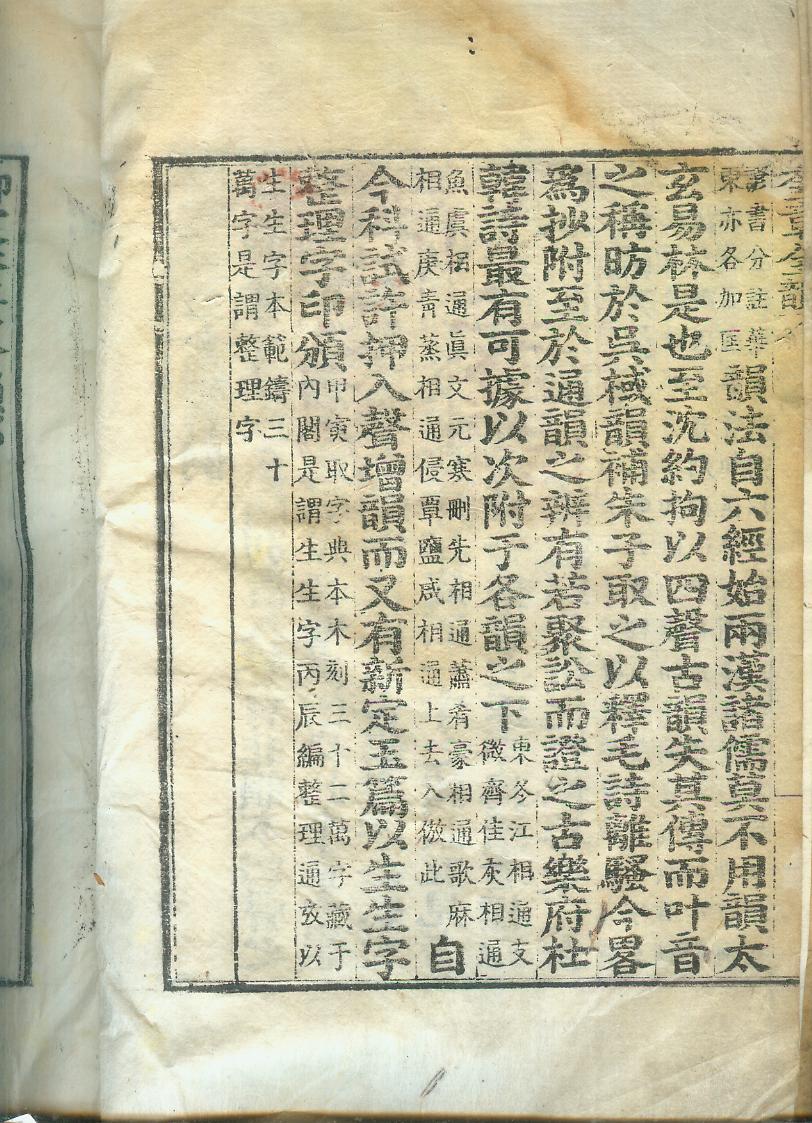 奎章全韻
諺書分註華
東亦各加匡
韻法自六經始兩漢諸儒莫不用韻太
玄易林是也至沈約拘以四聲古韻失其傳而叶音
之稱昉於吳棫韻補朱子取之以釋毛詩離騷今畧
爲抄附至於通韻之辨有若聚訟而證之古樂府杜
韓詩最有可據以次附于各韻之下
東冬江相通支
微齊佳灰相通
魚虞相通眞文元寒刪先相通蕭肴豪相通歌麻
相通庚靑蒸相通侵覃鹽咸相通上去入倣此
自
今科試許押入聲增韻而又有新定玉篇以生生字
整理字印頒
甲寅取字典本木刻三十二萬字藏于
內閣是謂生生字丙辰編整理通攷以
生生字本範鑄三十
萬字是謂整理字